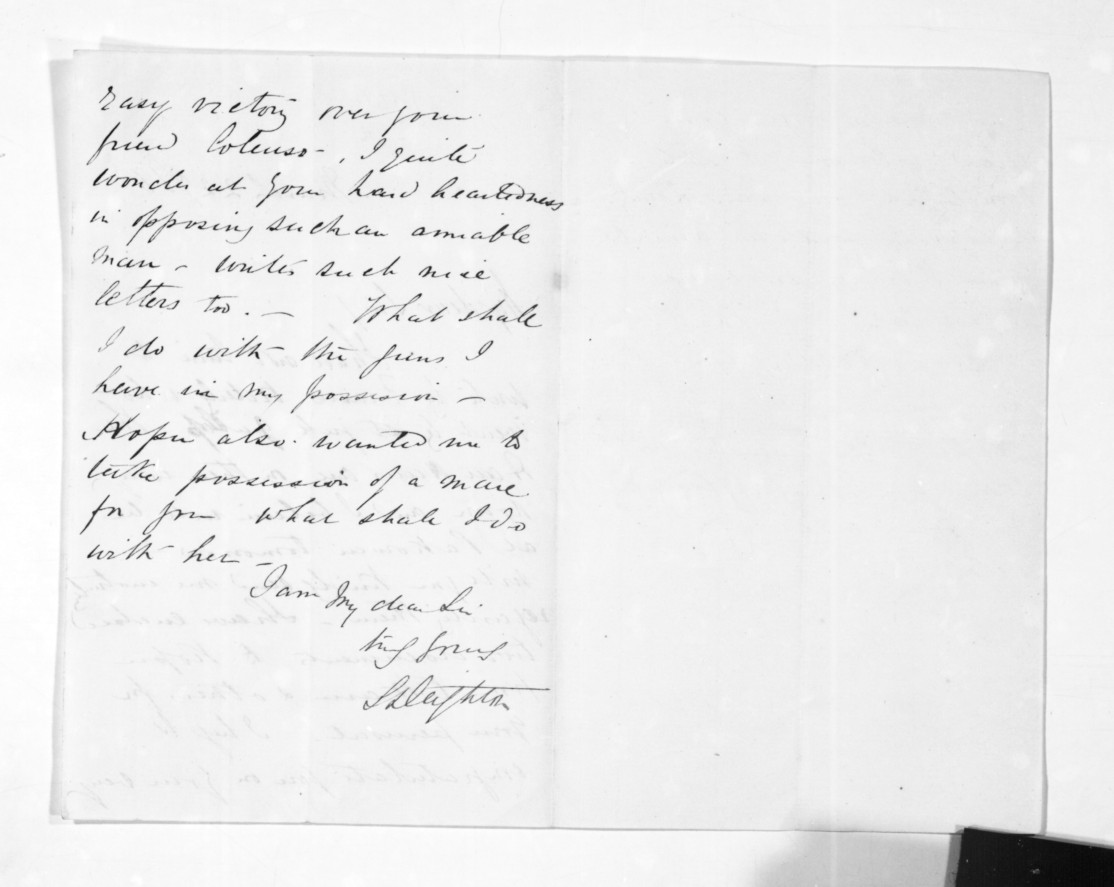 easy victory over your
friend Colenso -, I quite
wonder at your hard heartedness
in opposing such an amiable
man - writes such nice
letters too. -    What shall
I do with the guns I
have in my possession -
also wanted me to
take possession of a mare
for you what shall I do
with her -
I am My dear Sir
truly yours
Deighton